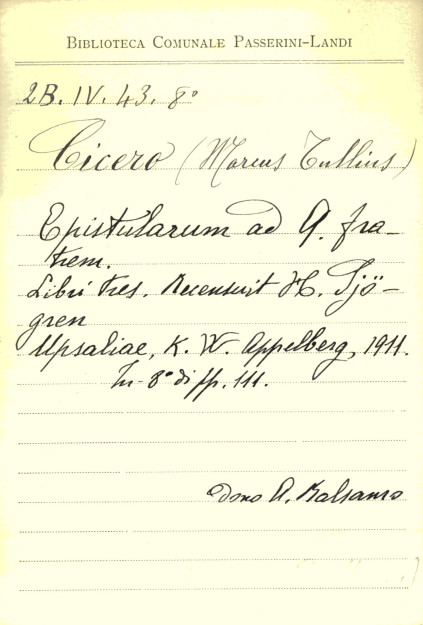 BIBLIOTECA COMUNALE PASSERINI-LANDI
2B. IV. 43. 8º
Cicero (Marcus Tullius)
Epistularum ad Q. fra-
trem.
Libri tres. Recensuit H. Sjö-
gren
Upsaliae, K. W. Appelberg, 1911.
In-8º di pp. 111.
Dono A. Balsamo